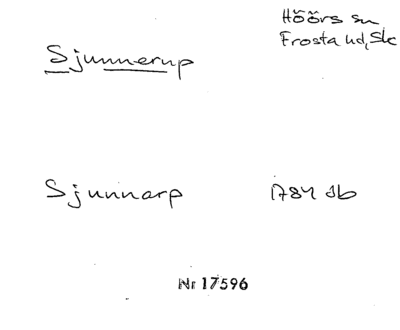 Höörs sn
Frosta hd, Sk
Sjunnerup
Sjunnarp 1784 Jb
Nr 17596